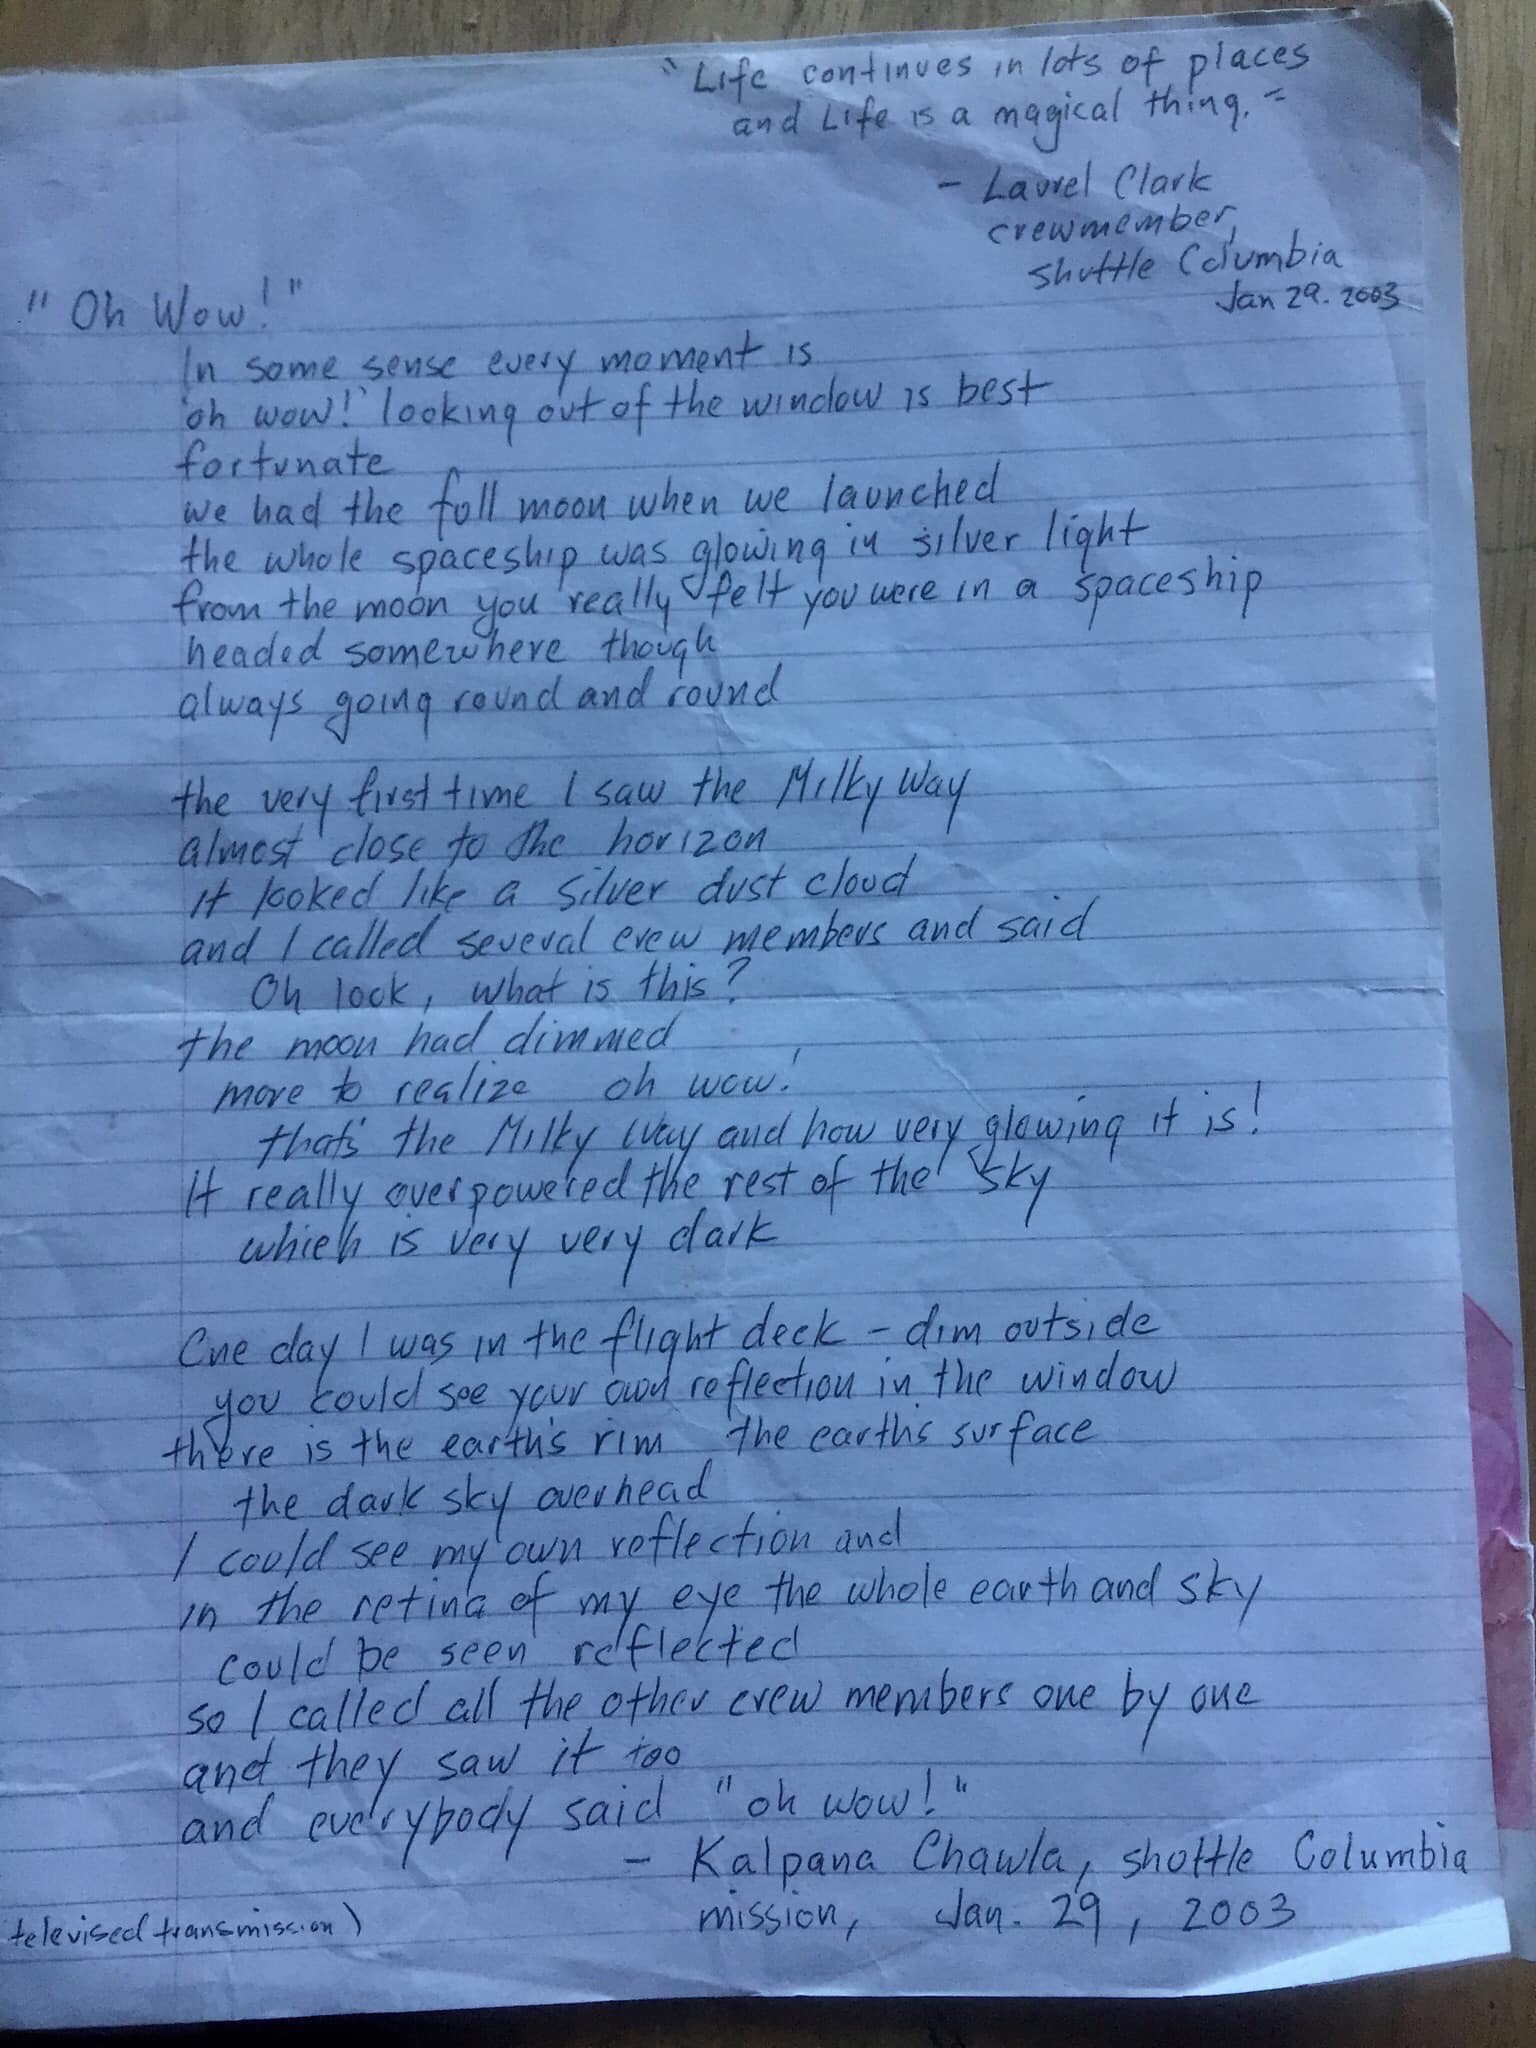 "Life continues in lots of places
and Life is a magical thing."
- Laurel Clark
crewmember,
shuttle Columbia
Jan 29. 2003
"Oh Wow!"
In some sense every moment is
'oh wow!' looking out of the window is best
fortunate
we had the full moon when we launched
the whole spaceship was glowing in silver light
from the moon you really felt you were in a spaceship
headed somewhere though
always going round and round
the very first time I saw the Milky Way
almost close to the horizon
it looked like a silver dust cloud
and I called several crew members and said
Oh look, what is this?
the moon had dimmed
more to realize oh wow!
that's the Milky Way and how very glowing it is!
It really overpowered the rest of the sky
which is very very dark
One day I was in the flight deck - dim outside
you could see your own reflection in the window
there is the earth's rim the earth's surface
the dark sky overhead
I could see my own reflection and
in the retina of my eye the whole earth and sky
could be seen reflected
so I called all the other crew members one by one
and they saw it too
and everybody said "oh wow!"
- Kalpana Chawla, shuttle Columbia
mission, Jan. 29, 2003
televised transmission)